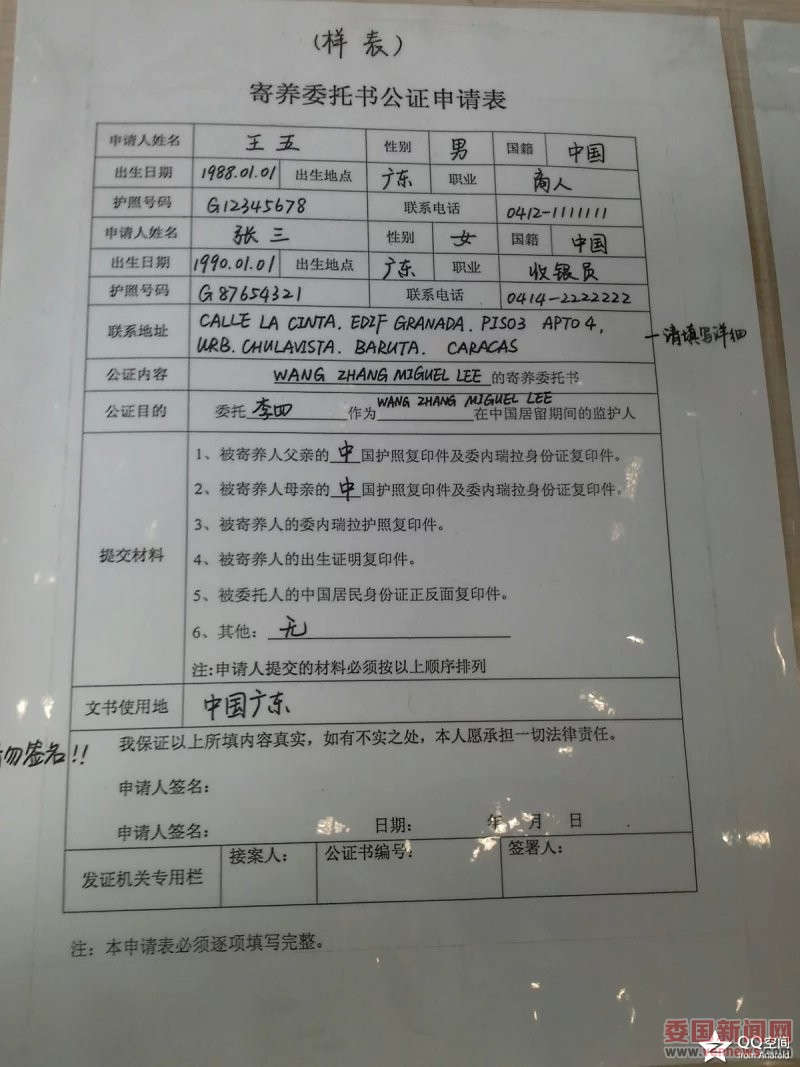 （样表）
寄养委托书公证申请表
申请人姓名 王五 性别 男 国籍 中国
出生日期 1988.01.01 出生地点 广东 职业 商人
护照号码 G12345678 联系电话 0412-1111111
申请人姓名 张三 性别 女 国籍 中国
出生日期 1990.01.01 出生地点 广东 职业 收银员
护照号码 G87654321 联系电话 0414-2222222
联系地址 CALLE LA CINTA. EDIF GRANADA. PISO3 APTO4,
URB. CHULAVISTA. BARUTA. CARACAS
一请填写详细
公证内容 WANG ZHANG MIGUEL LEE 的寄养委托书
公证目的 委托 李四 作为 WANG ZHANG MIGUEL LEE 在中国居留期间的监护人
提交材料
1、被寄养人父亲的 中 国护照复印件及委内瑞拉身份证复印件。
2、被寄养人母亲的 中 国护照复印件及委内瑞拉身份证复印件。
3、被寄养人的委内瑞拉护照复印件。
4、被寄养人的出生证明复印件。
5、被委托人的中国居民身份证正反面复印件。
6、其他：无
注:申请人提交的材料必须按以上顺序排列
文书使用地 中国广东
我保证以上所填内容真实，如有不实之处，本人愿承担一切法律责任。
勿签名!!
申请人签名：
申请人签名： 日期： 年 月 日
发证机关专用栏 接案人： 公证书编号： 签署人：
注：本申请表必须逐项填写完整。
委国新闻网
QQ空间
from Android